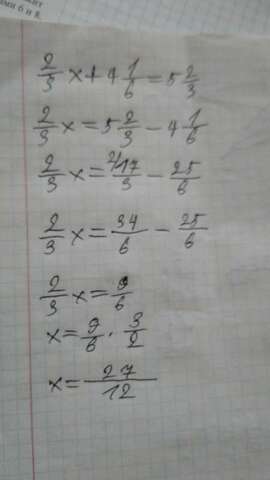 ами 6 и 8.
2/3 x + 4 1/6 = 5 2/3
2/3 x = 5 2/3 - 4 1/6
2/3 x = 2/ 17/3 - 25/6
2/3 x = 34/6 - 25/6
2/3 x = 9/6
x = 9/6 · 3/2
x = 27/12